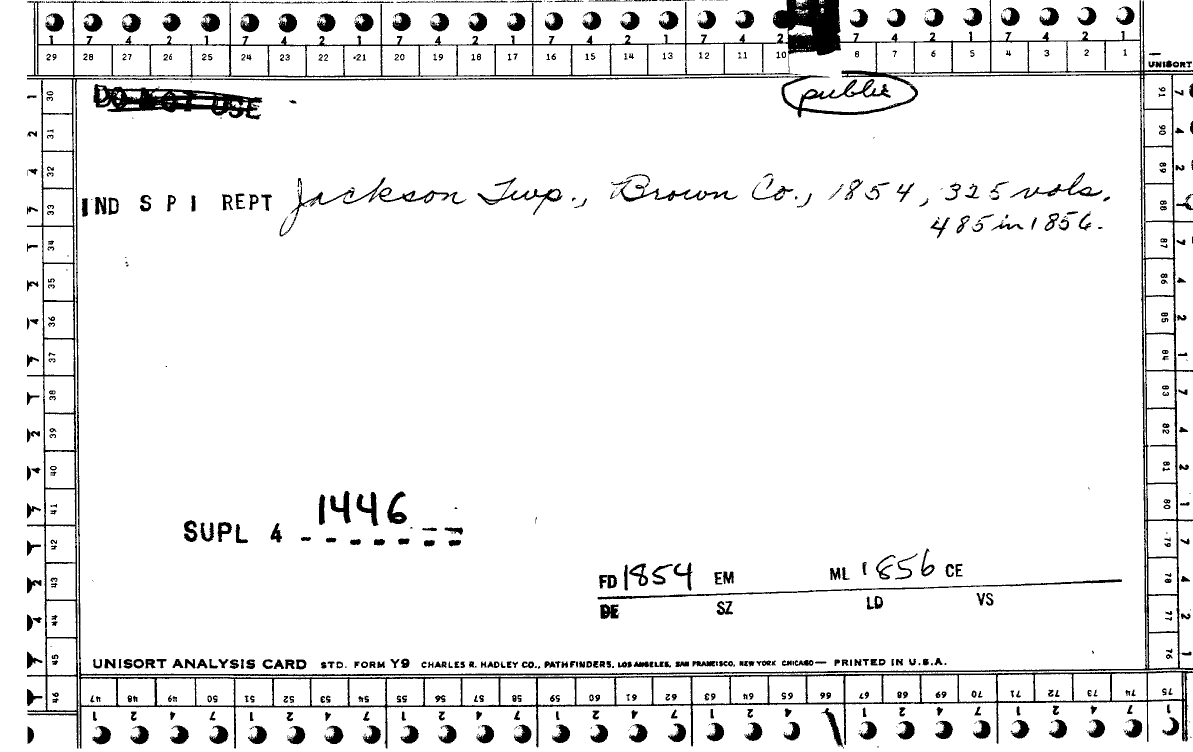 1 7 4 2 1 7 4 2 1 7 4 2 1 7 4 2 1 7 4 2 7 4 2 1 7 4 2 1
29 28 27 26 25 24 23 22 21 20 19 18 17 16 15 14 13 12 11 10 8 7 6 5 4 3 2 1
UNISORT
DO NOT USE
public
IND S P I REPT Jackson Twp., Brown Co., 1854, 325 vols.
485 in 1856.
SUPL 4 1446
FD 1854 EM ML 1856 CE
DE SZ LD VS
UNISORT ANALYSIS CARD STD. FORM Y9 CHARLES R. HADLEY CO., PATHFINDERS, LOS ANGELES, SAN FRANCISCO, NEW YORK CHICAGO — PRINTED IN U.S.A.
30 31 32 33 34 35 36 37 38 39 40 41 42 43 44 45 46
91 90 89 88 87 86 85 84 83 82 81 80 79 78 77 76
47 48 49 50 51 52 53 54 55 56 57 58 59 60 61 62 63 64 65 66 67 68 69 70 71 72 73 74 75